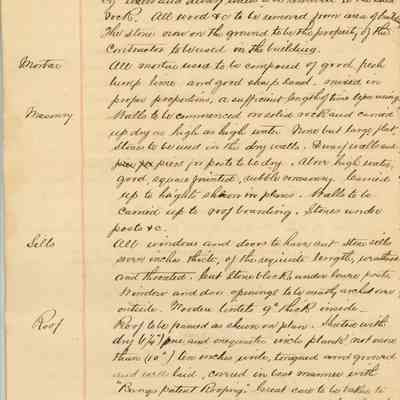 rock. All wood &c to be removed from area of building
The stone now on the ground to be the property of the
Contractor to be used in the building.
Mortar All mortar used to be composed of good fresh
lump lime and good sharp sand. mixed in
proper proportions, a sufficient length of time before using
Masonry Walls to be commenced on solid rock and carried
up dry as high as high water None but large flat
Stones to be used in the dry walls. Dwarf walls and
piers for posts to be dry. Above high water,
good, square jointed, rubble masonry carried
up to height shown in plans. Walls to be
carried up to roof boarding. Stones under
posts &c.
Sills All windows and doors to have cut stone sills
seven inches thick, of the requisite length, weathered
and throated. Cut Stone blocks under posts
Window and door openings to be neatly arched over
outside. Wooden lintels 9" thick inside.
Roof Roof to be framed as shown on plan. Sheeted with
dry 1¼" pine and inch plank not more
than (10") ten inches wide, tongued and grooved
and well laid, covered in best manner with
Patent Roofing. Great care to be taken to